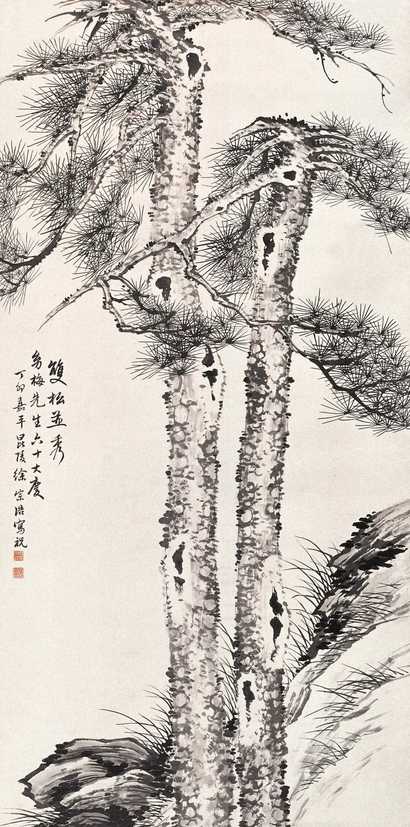 雙松並秀
翁梅先生六十大慶
丁卯嘉平昆陵徐宗浩寫祝